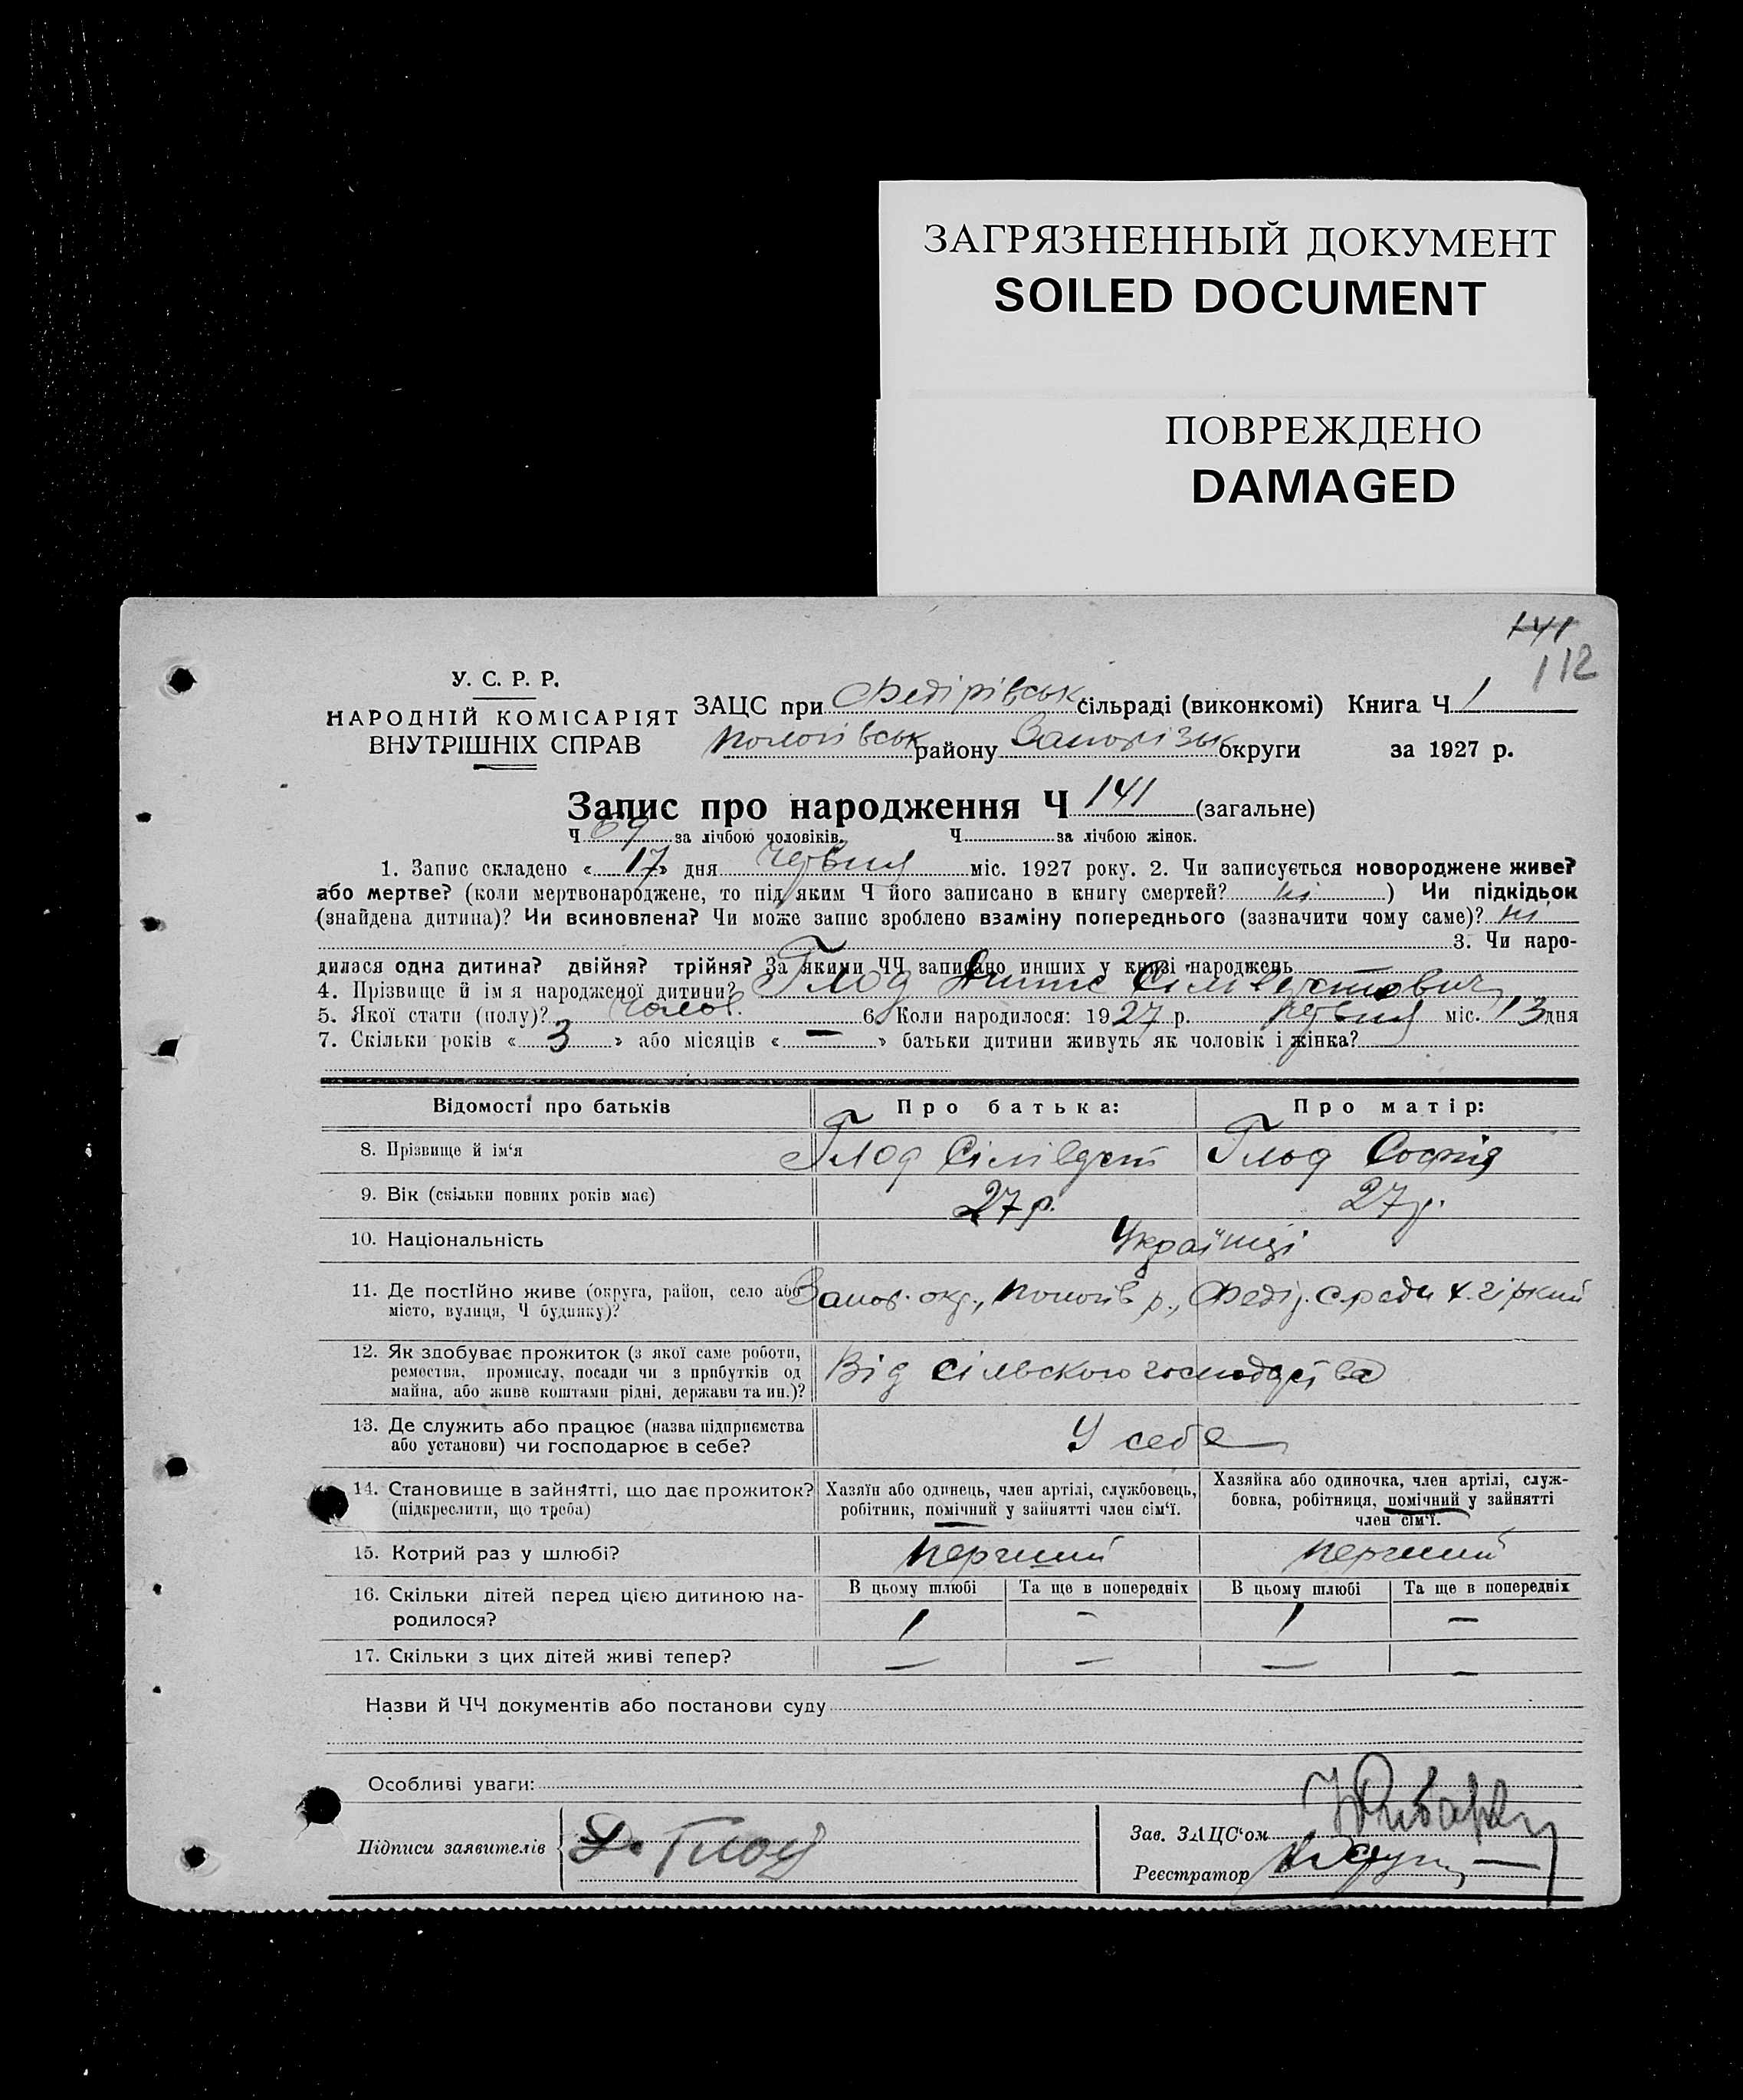 ЗАГРЯЗНЕННЫЙ ДОКУМЕНТ
SOILED DOCUMENT
ПОВРЕЖДЕНО
DAMAGED
141
112
У. С. Р. Р.
НАРОДНІЙ КОМІСАРІЯТ
ВНУТРІШНІХ СПРАВ
ЗАЦС при Федірівськ сільраді (виконкомі) Книга Ч 1
Пологівськ району Запорізьк округи за 1927 р.
Запис про народження Ч 141 (загальне)
Ч 69 за лічбою чоловіків. Ч за лічбою жінок.
1. Запис складено « 17 » дня червня міс. 1927 року. 2. Чи записується новороджене живе?
або мертве? (коли мертвонароджене, то під яким Ч його записано в книгу смертей? ні ) Чи підкідьок
(знайдена дитина)? Чи всиновлена? Чи може запис зроблено взаміну попереднього (зазначити чому саме)? ні
3. Чи наро-
дилася одна дитина? двійня? трійня? За якими ЧЧ записано инших у книзі народжень
4. Прізвище й ім я народженої дитини? Глод Сілівестович
5. Якої стати (полу)? чолов. 6. Коли народилося: 1927 р. червня міс. 13 дня
7. Скільки років « 3 » або місяців « — » батьки дитини живуть як чоловік і жінка?
Відомості про батьків Про батька: Про матір:
8. Прізвище й ім‘я Глод Сілівест Глод Софія
9. Вік (скільки повних років має) 27 р. 27 р.
10. Національність Українці
11. Де постійно живе (округа, район, село або Запор. окр., Пологів р., Федір. С.ради х. гіркий
місто, вулиця, Ч будинку)?
12. Як здобуває прожиток (з якої саме роботи,
ремества, промислу, посади чи з прибутків од Від сільского господарства
майна, або живе коштами рідні, держави та ин.)?
13. Де служить або працює (назва підприємства У себе
або установи) чи господарює в себе?
14. Становище в зайнятті, що дає прожиток? Хазяїн або одинець, член артілі, службовець, Хазяйка або одиночка, член артілі, служ-
(підкреслити, що треба) робітник, помічний у зайнятті член сім‘ї. бовка, робітниця, помічний у зайнятті
член сім‘ї.
15. Котрий раз у шлюбі? перший перший
16. Скільки дітей перед цією дитиною на- В цьому шлюбі Та ще в попередніх В цьому шлюбі Та ще в попередніх
родилося? 1 — 1 —
17. Скільки з цих дітей живі тепер? — — — —
Назви й ЧЧ документів або постанови суду
Особливі уваги:
Підписи заявителів Глод
Зав. ЗАЦС‘ом
Реєстратор